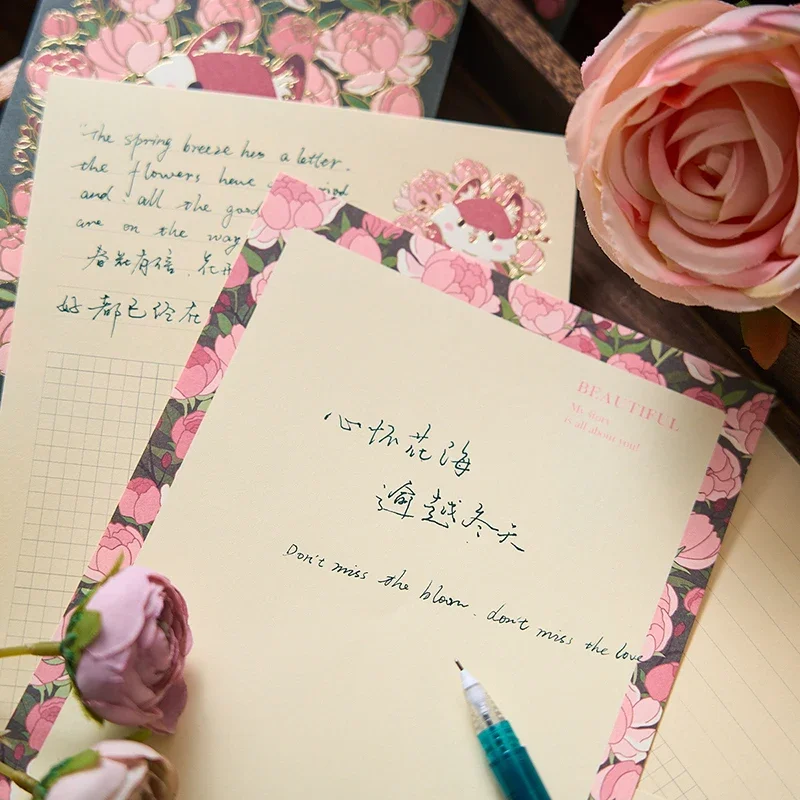 "the spring breeze has a letter.
the flowers have
and all the good
are on the way
春和有信,花开
好都已经在
BEAUTIFUL
My diary
is all about you!
心怀花海
逾越冬天
Don't miss the bloom. don't miss the love